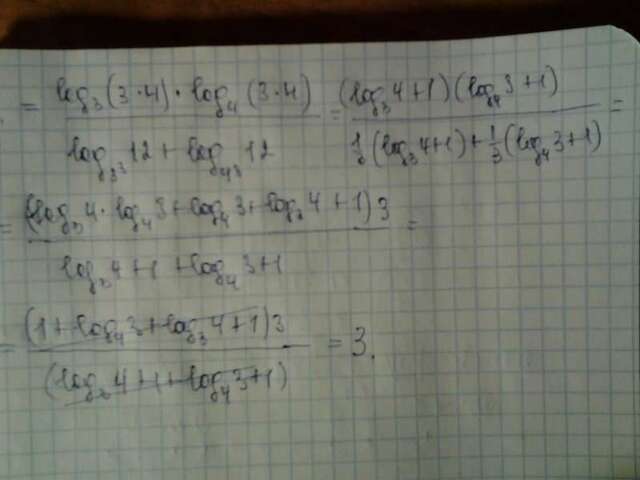 = log₃(3·4)·log₄(3·4) / log₃³12 + log₄³12 = (log₃4+1)(log₄3+1) / ⅓(log₃4+1)+⅓(log₄3+1) =
= (log₃4·log₄3+log₄3+log₃4+1)3 / log₃4+1+log₄3+1 =
= (1+log₄3+log₃4+1)3 / (log₃4+1+log₄3+1) = 3.